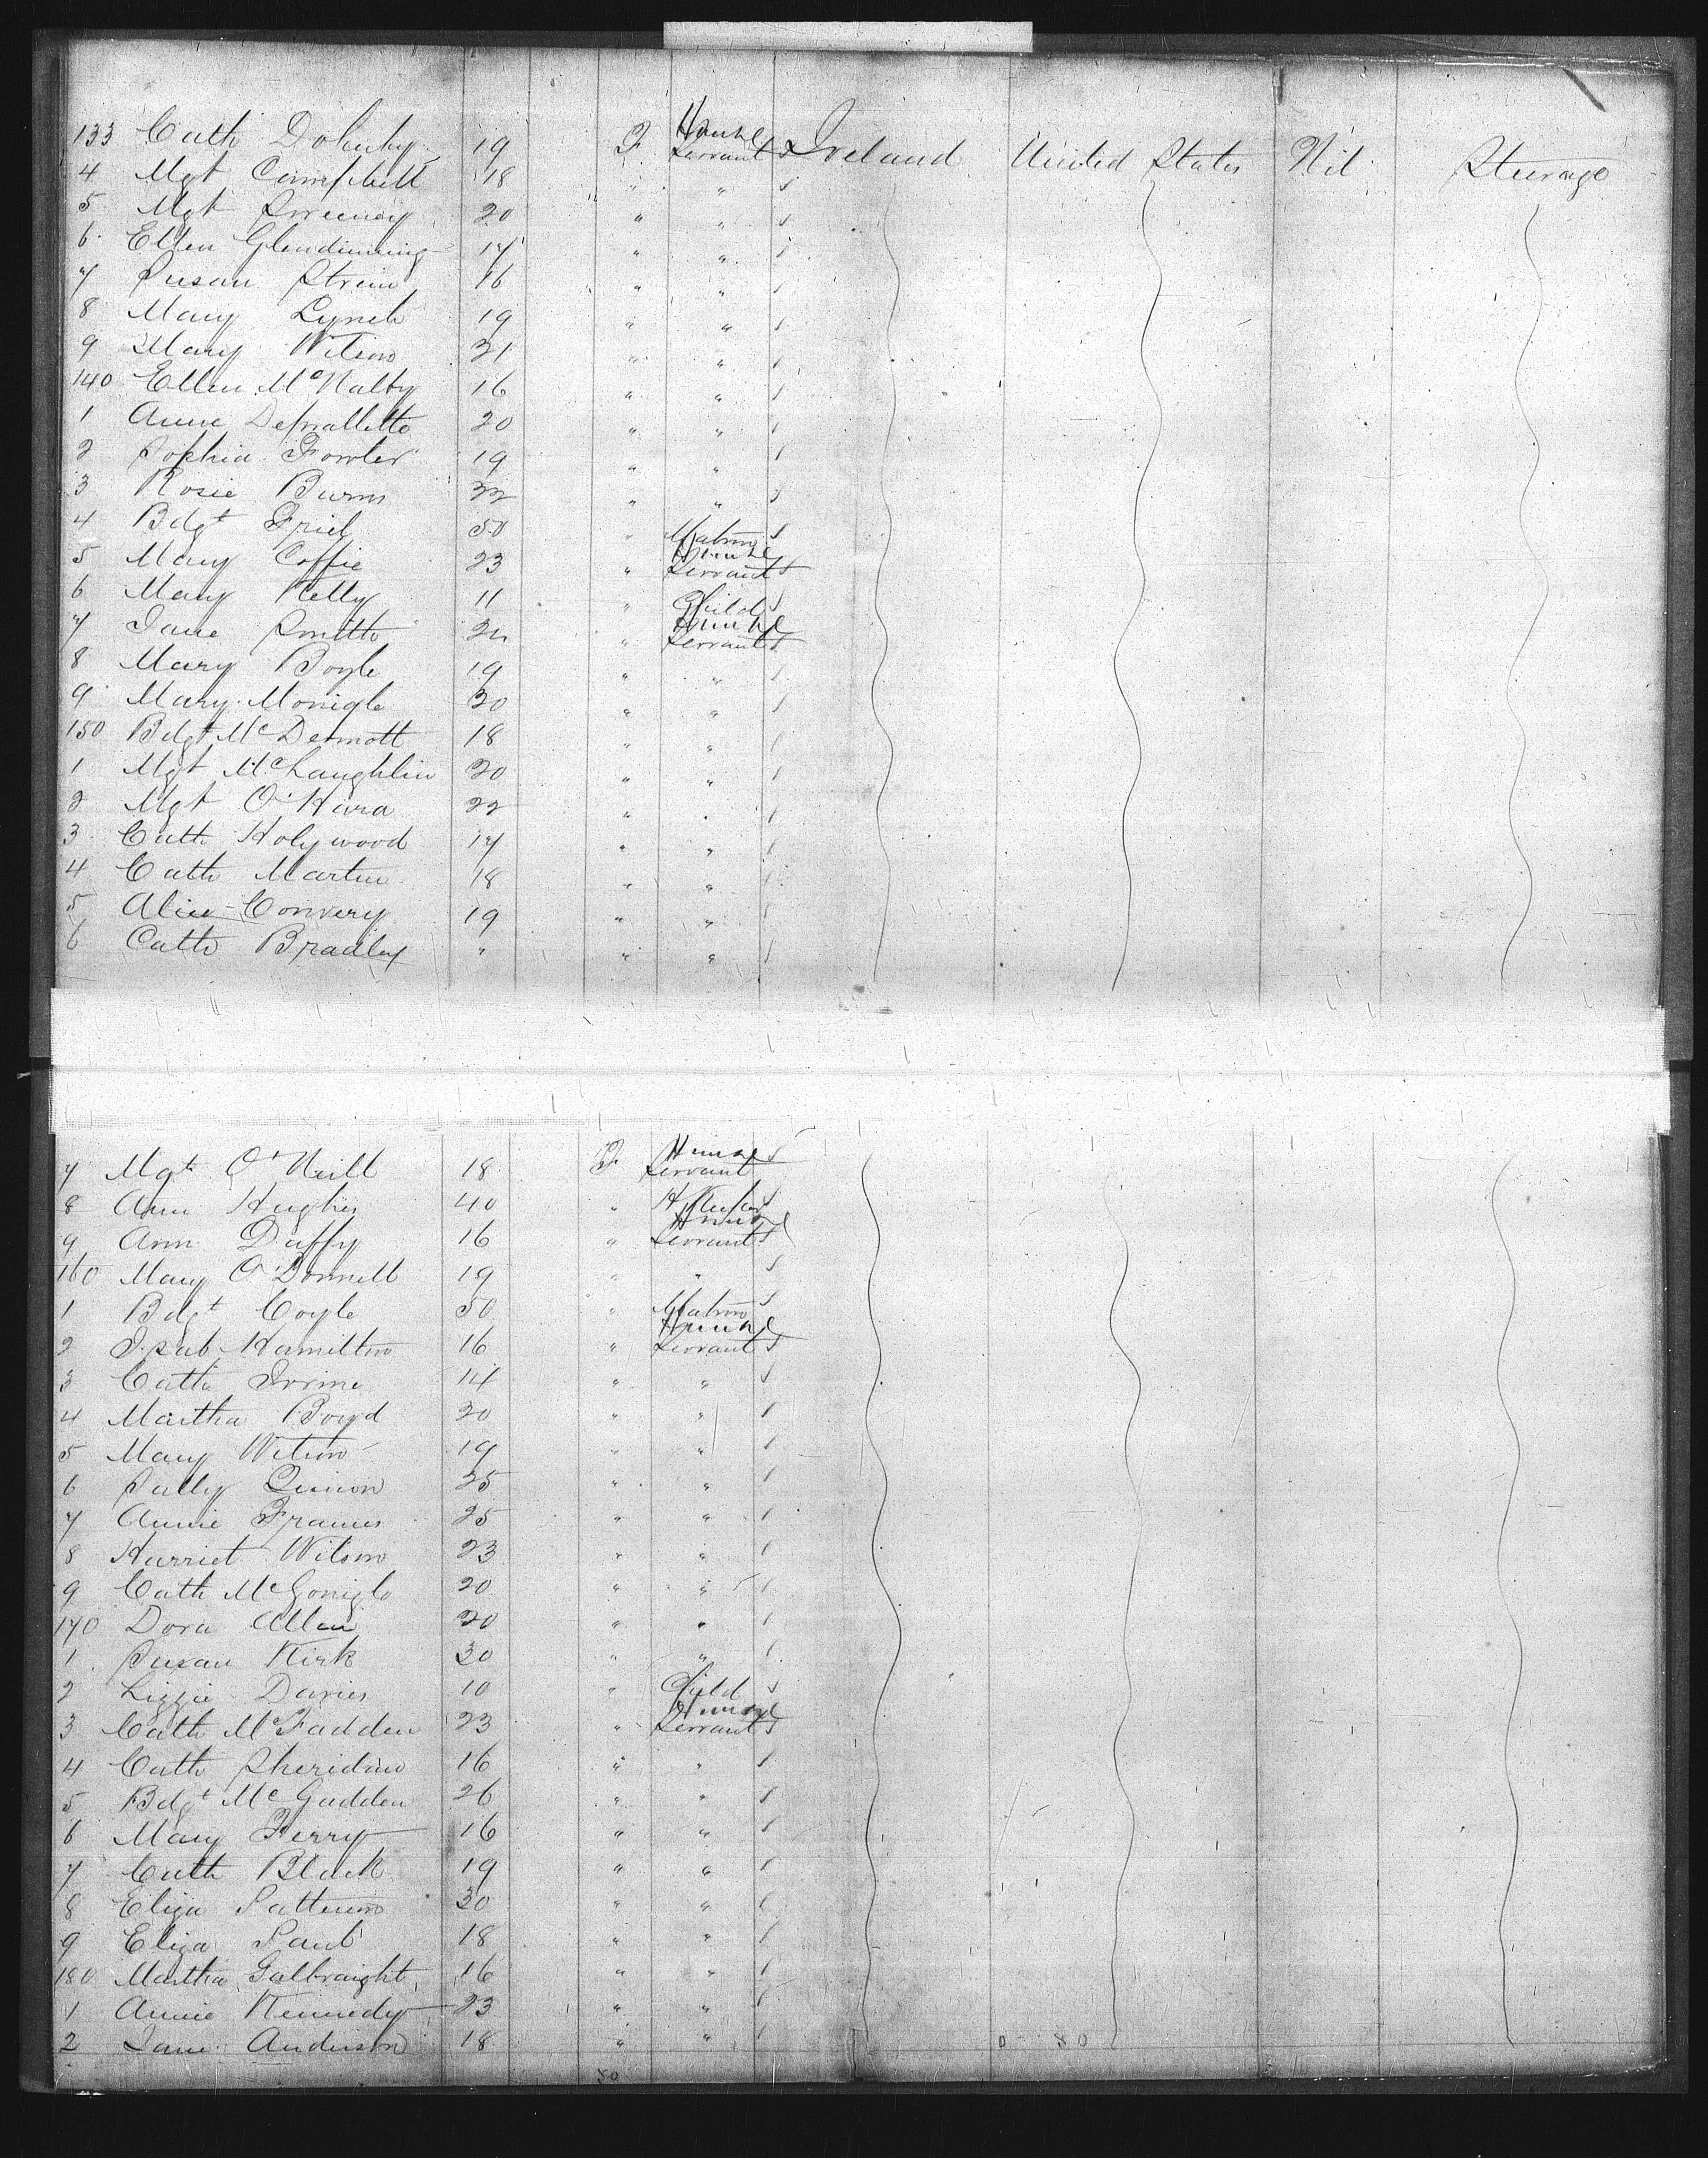 133 Cath Doherty 19 F House Servant s Ireland United States Nil Steerage
4 Mgt Campbell 18 " " s
5 Mgt Sweeney 20 " " s
6 Ellen Glendinning 17 " " s
7 Susan Strain 16 " " s
8 Mary Lynch 19 " " s
9 Mary Wilson 21 " " s
140 Ellen McNalty 16 " " s
1 Anne 20 " " s
2 Sophia Fowler 19 " " s
3 Rosie Burns 22 " " s
4 Bdgt Friel 50 " Matron s
5 Mary Coffie 23 " House Servant s
6 Mary Kelly 11 " Child s
7 Jane Smith 24 " House Servant s
8 Mary Boyle 19 " " s
9 Mary Monigle 20 " " s
150 Bdgt McDermott 18 " " s
1 Mgt McLaughlin 20 " " s
2 Mgt O'Hara 22 " " s
3 Cath Holywood 17 " " s
4 Cath Martin 18 " " s
5 Alice Convery 19 " " s
6 Cath Bradley " " " s
7 Mgt O'Neill 18 F House Servant s
8 Ann Hughes 40 " H Keeper s
9 Ann Duffy 16 " House Servant s
160 Mary O'Donnell 19 " " s
1 Bdgt Coyle 50 " Matron s
2 Isab Hamilton 16 " House Servant s
3 Cath Irvine 14 " " s
4 Martha Boyd 20 " " s
5 Mary Wilson 19 " " s
6 Sally Quinn 25 " " s
7 Annie Frames 25 " " s
8 Harriet Wilson 23 " " s
9 Cath McGonigle 20 " " s
170 Dora Allen 20 " " s
1 Susan Kirk 30 " " s
2 Lizzie Davies 10 " Child s
3 Cath McFadden 23 " House Servant s
4 Cath Sheridan 16 " " s
5 Bdgt McGadden 26 " " s
6 Mary Ferry 16 " " s
7 Cath Black 19 " " s
8 Eliza Patterson 30 " " s
9 Eliza 18 " " s
180 Martha Galbraight 16 " " s
1 Annie Kennedy 23 " " s
2 Jane Anderson 18 " " s
50